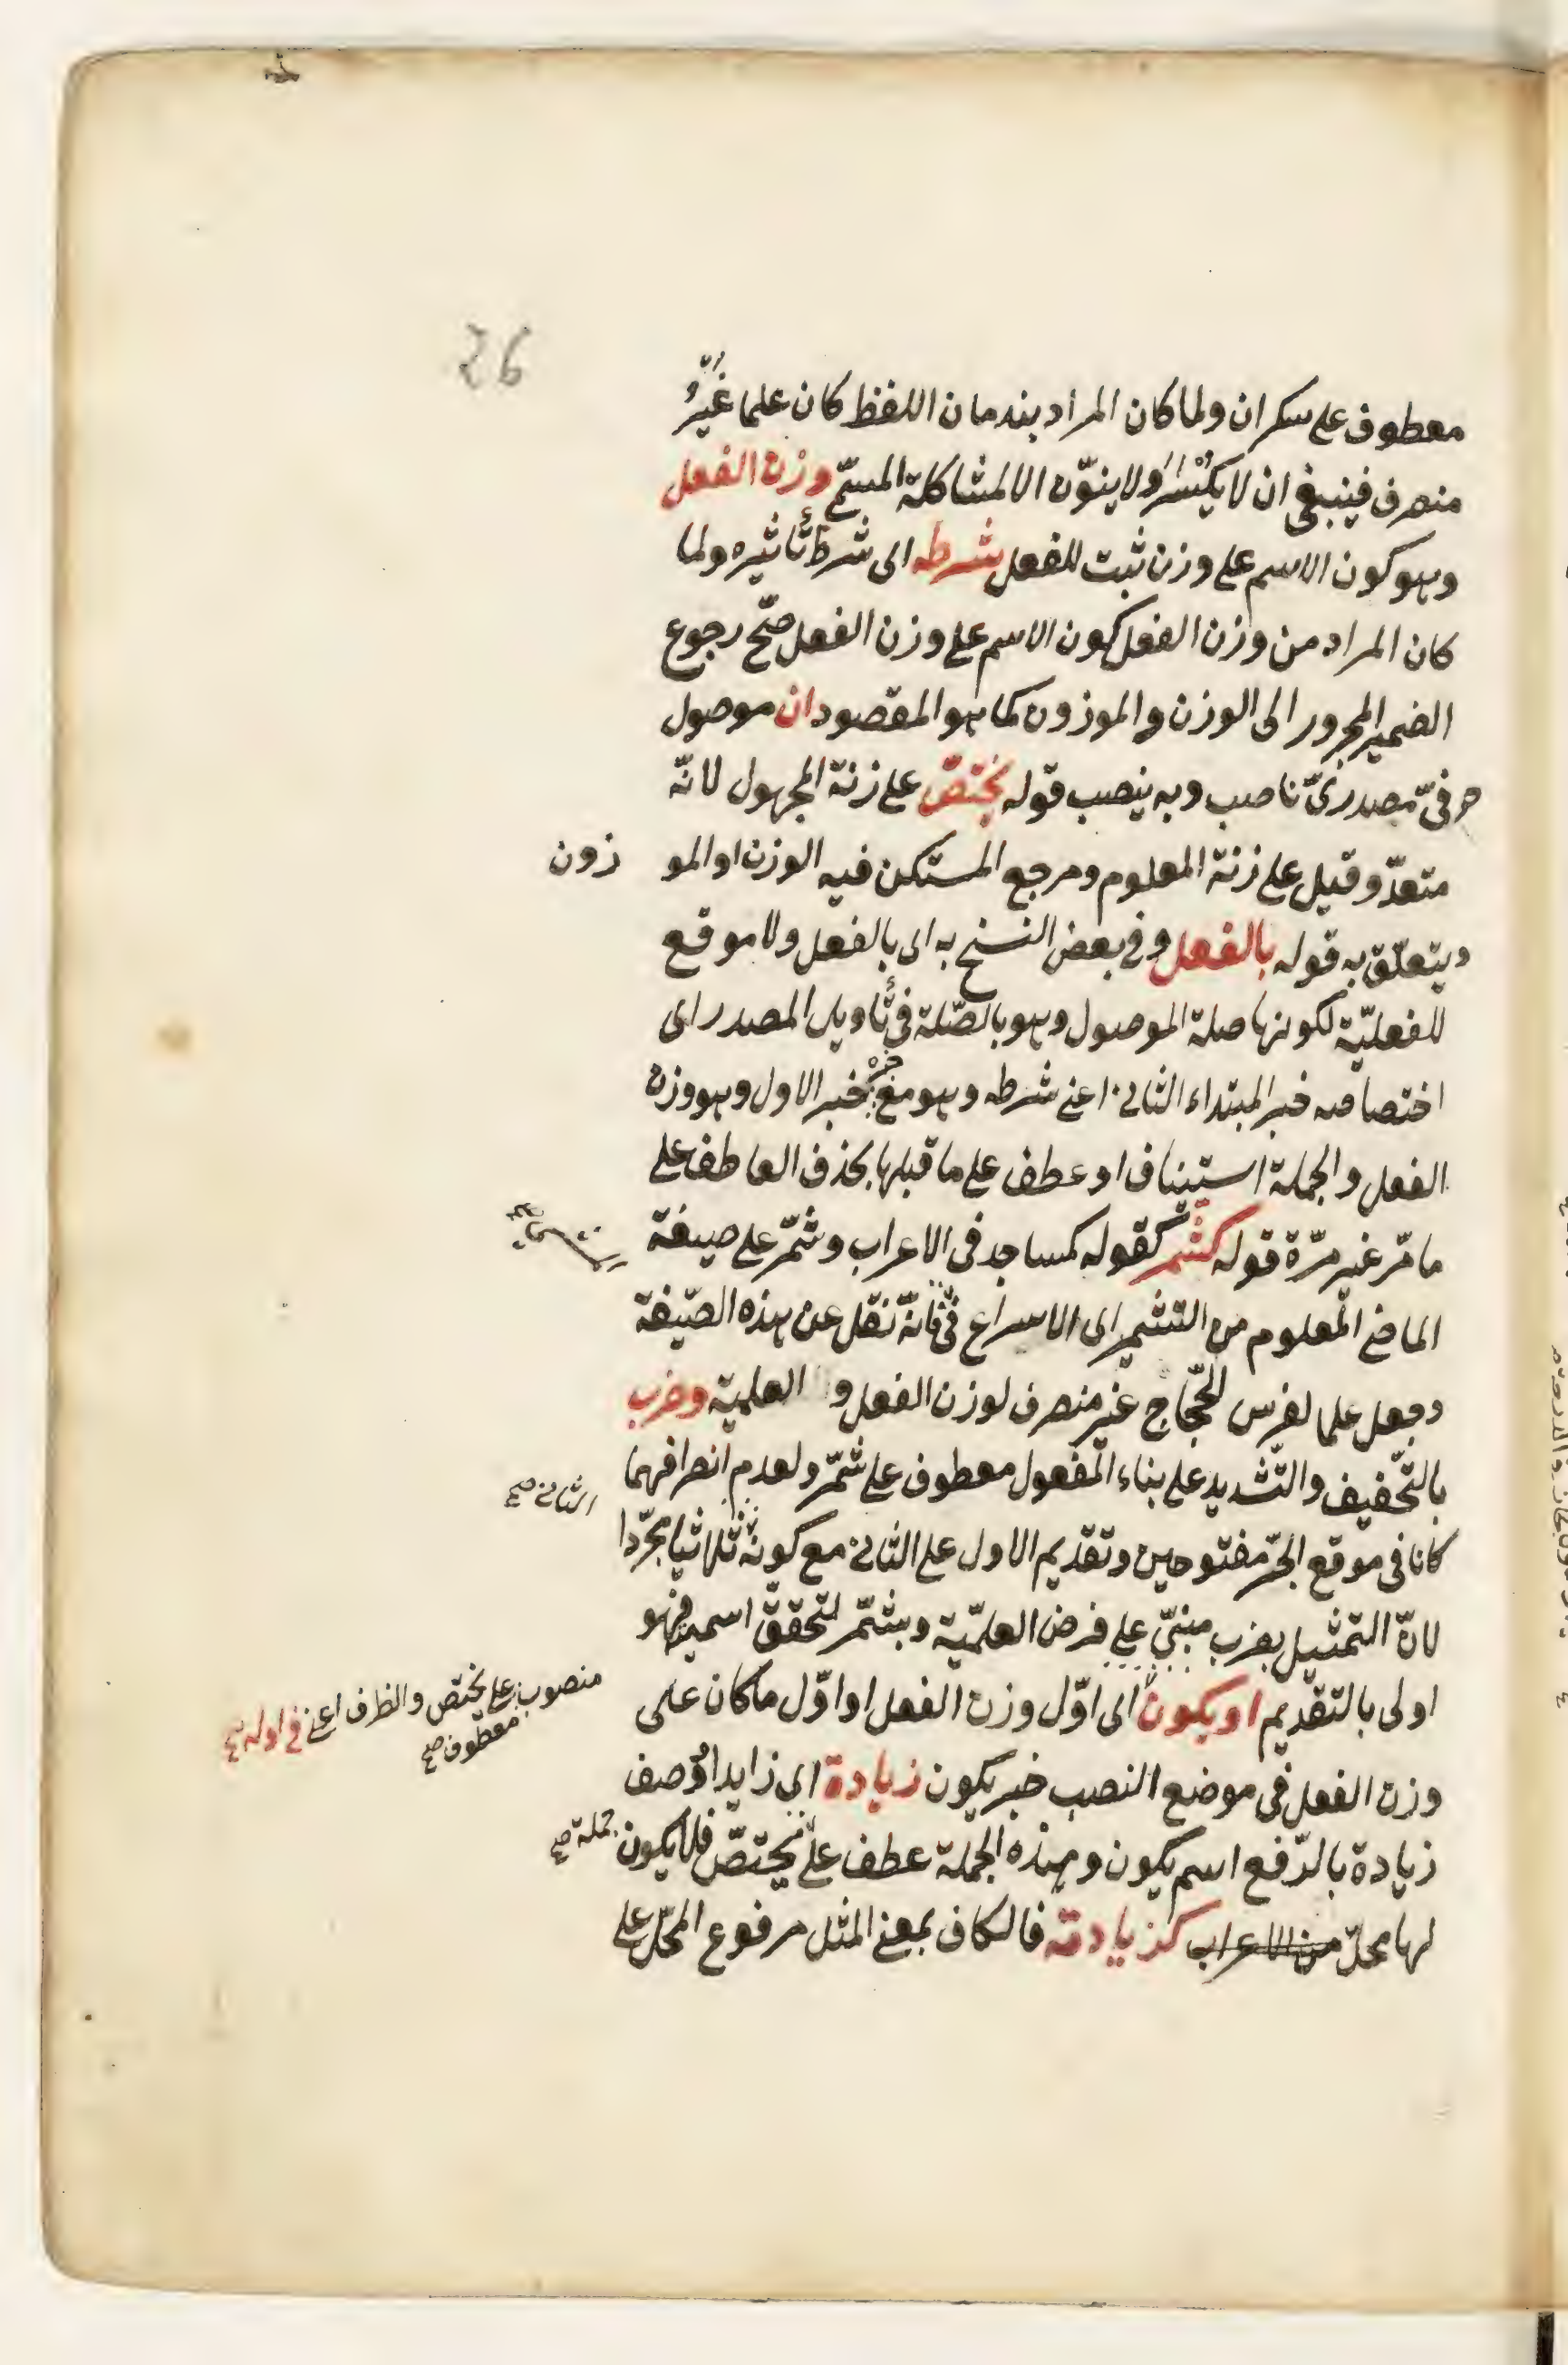 26
معطوف على سكران ولما كان المراد بندمان اللفظ كان علما غيرُ
منصرف فينبغى ان لا يكسر ولا ينوّن الا لمشاكلة المسمّى وزن الفعل
وهو كون الاسم على وزن ثبت للفعل شرطه اى شرط تأثيره ولما
كان المراد من وزن الفعل كون الاسم على وزن الفعل صحّ رجوع
الضمير المجرور الى الوزن والموزون كما هو المقصود ان موصول
حرفىّ مصدرىّ ناصب وبه ينصب قوله يختصّ على زنة المجهول لانّه
متعدّ وقيل على زنة المعلوم ومرجع المستكن فيه الوزن او الموزون
ويتعلّق به قوله بالفعل وفى بعض النسخ به اى بالفعل ولا موقع
للفعليّة لكونها صلة الموصول وهو بالصّلة فى تأويل المصدر اى
اختصاصه خبر المبتداء الثانى اعنى شرطه وهو مع خبره خبر الاول وهو وزن
الفعل والجملة استيناف او عطف على ما قبلها بحذف العاطف على
ما مّر غير مرّة قوله كشمّر كقوله كمساجد فى الاعراب وشمّر على صيغة
الماضى المعلوم من التشمير اى الاسراع فانّه نقل عن هذه الصّيغة
وجعل علما لفرس الحجّاج غير منصرف لوزن الفعل و العلمية وضرب
بالتّخفيف والتّشديد على بناء المفعول معطوف على شمّر ولعدم انصرافهما
الثانى صح
كانا فى موقع الجرّ مفتوحين وتقديم الاول على الثانى مع كونه ثلاثيا مجرّدا
لانّ التمثيل بضرب مبنىّ على فرض العلميّة وبشمّر لتحقق اسميته فهو
اولى بالتقديم او يكون اى اوّل وزن الفعل او اوّل ما كان على
منصوب على يختص والظرف اعنى فى اوله صح
معطوف صح
وزن الفعل فى موضع النصب خبر يكون زيادة اى زايد او وصف
زيادة بالرّفع اسم يكون وهذه الجملة عطف على يختصّ فلا يكون
جملة صح
لها محلّ من الاعراب كزيادته فالكاف بمعنى المثل مرفوع المحلّ على